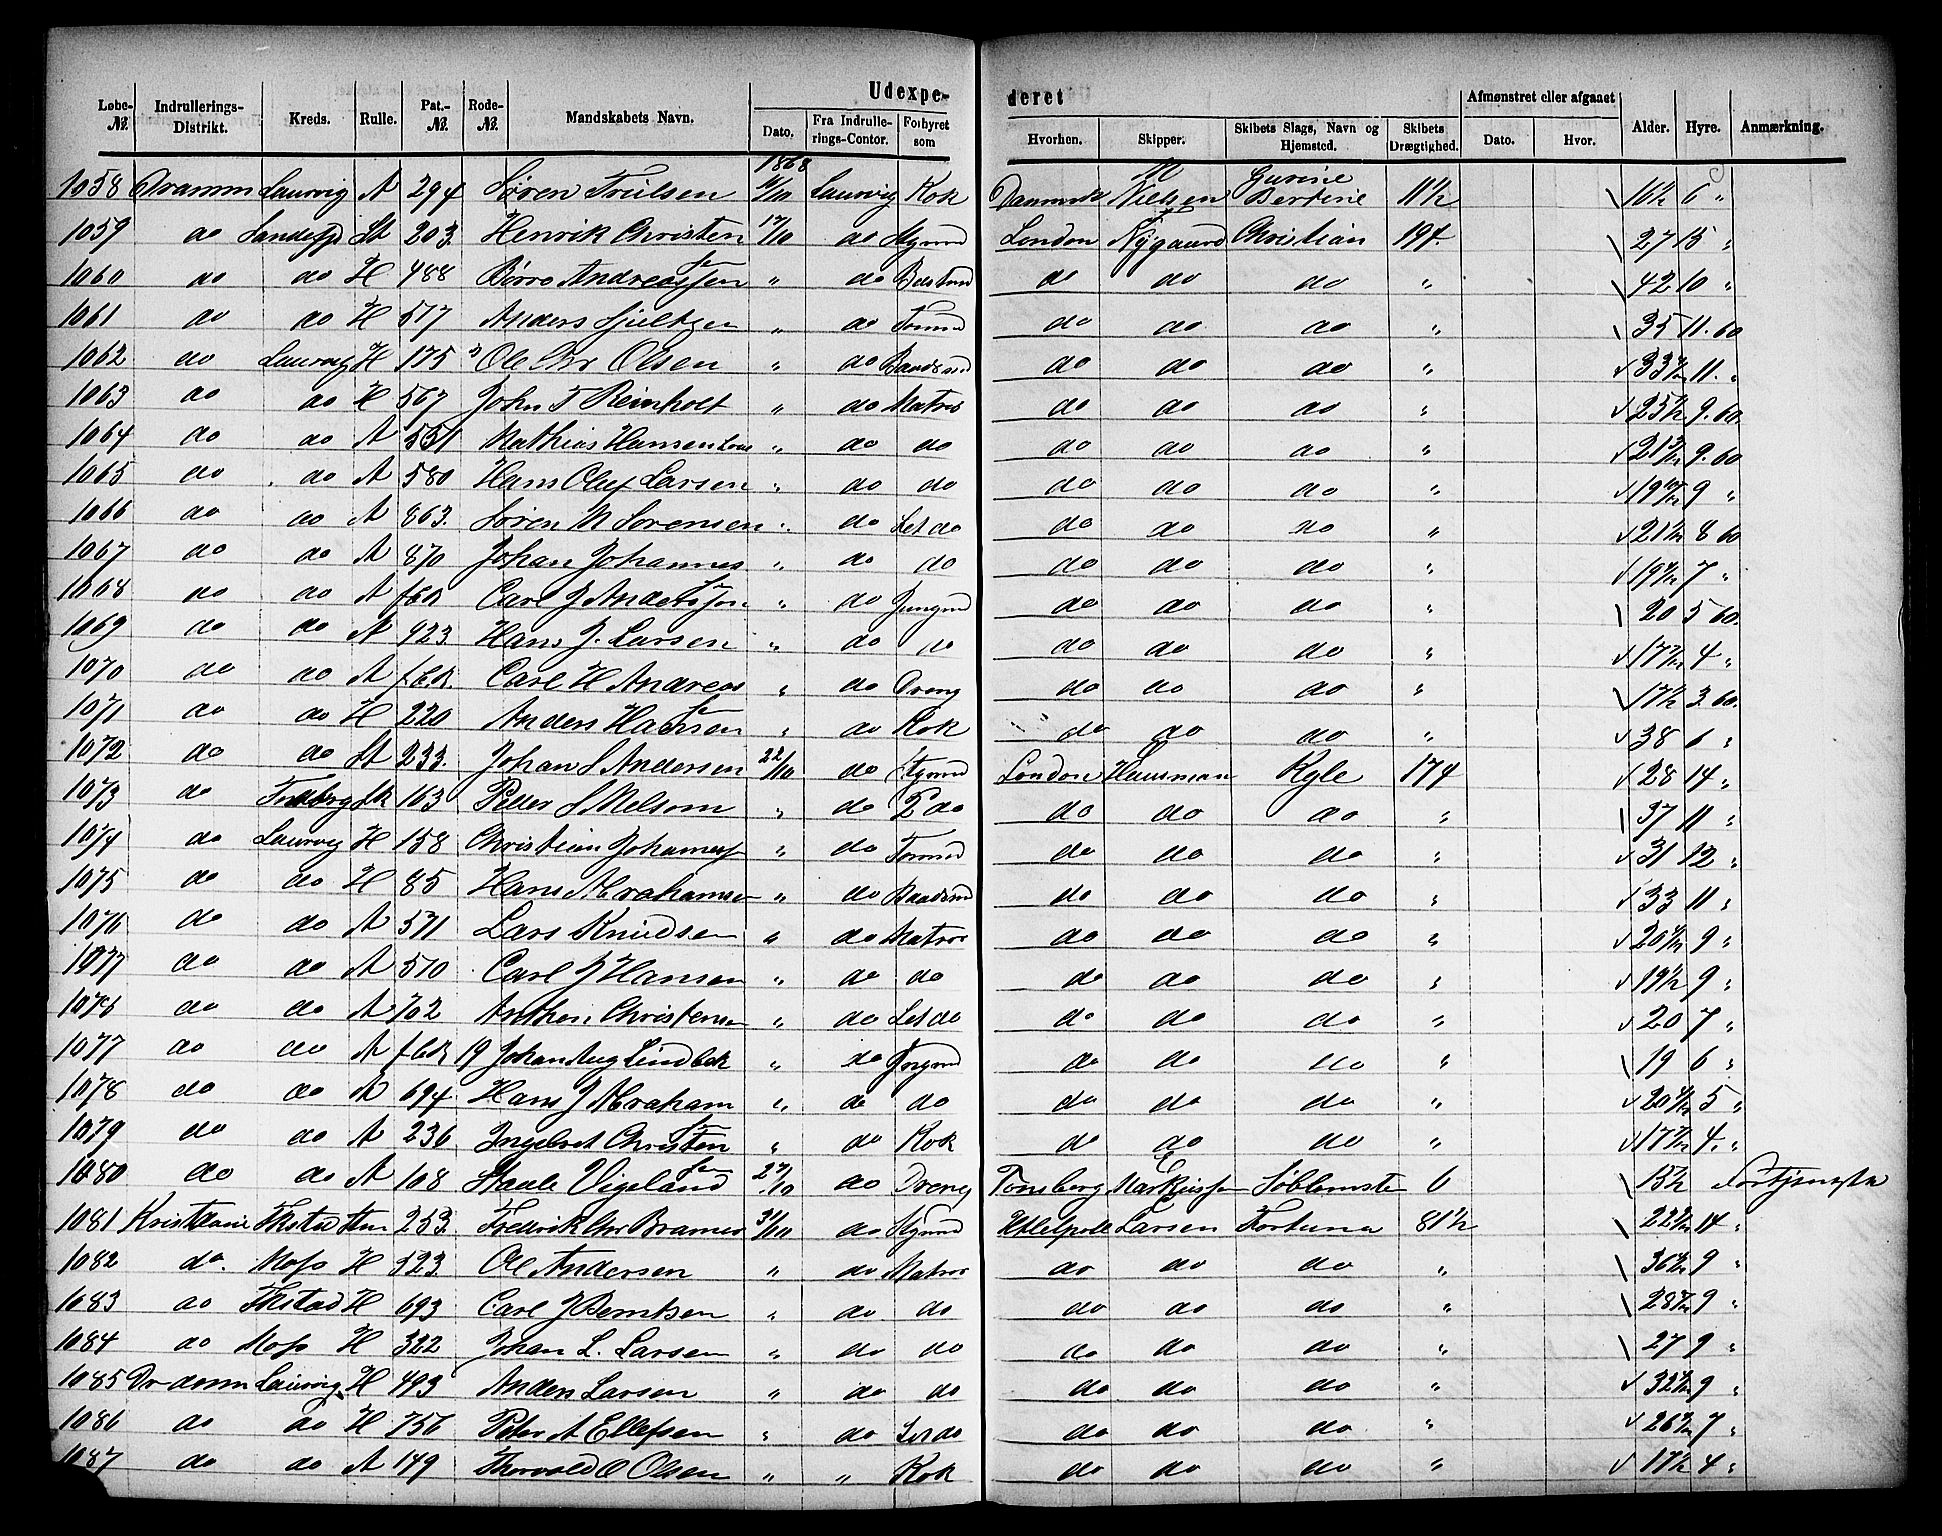 Udexpe- deret
Løbe-№. Indrullerings-Distrikt. Kreds. Rulle. Pat.-№. Rode-№. Mandskabets Navn. Dato. Fra Indrullerings-Contor. Forhyret som Hvorhen. Skipper. Skibets Slags, Navn og Hjemsted. Skibets Drægtighed. Afmønstret eller afgaaet Dato. Hvor. Alder. Hyre. Anmærkning.
1868
1058 Dramm Laurvig A 294 Søren Trulsen 9/10 Laurvig Kok Danmark M Nielsen Gurine Bertine 11½ 16½ 6 "
1059 do Sandefjd St 203. Henrik Christensen 17/10 do Stymd London Nygaard Christian 194. 27 15 "
1060 do do H 488 Børre Andreassen " do Bestmd do do do " 42 10 "
1061 do do H 517 Anders " do Tømmd do do do " 35 11.60
1062 do Laurvig H 175 Ole Chr Olsen " do Baadsmd do do do " 33 11. "
1063 do do H 567 John T Reinholt " do Matros do do do " 25½ 9.60.
1064 do do A 551 Mathias Hansen " do do do do do " 21 9.60
1065 do do A 580 Hans Oluf Larsen " do do do do do " 19 9 "
1066 do do A 863. Søren M Sørensen " do Let do do do do " 21 8 60
1067 do do A 870 Johan Johannes " do do do do do " 19 7 "
1068 do do A fbk Carl J Anderssen " do Jungmd do do do " 20 5 60.
1069 do do A 923. Hans J. Larsen " do do do do do " 17 4 "
1070 do do A fbk. Carl H Andreassen " do Dreng do do do " 17½ 3.60.
1071 do do H 220 Anders Hansen " do Kok do do do " 38 6 "
1072 do do St 233. Johan S Andersen 22/10 do Stymd London Hausman Kyle 174 28 14 "
1073 do Tønsberg Sk 163 Peder S Melsom " do 2 do do do do " 37 11 "
1074 do Laurvig H 158 Christian Johanness " do Tømmd do do do " 31 12 "
1075 do do H 85 Hans Abrahamsen " do Baadsmd do do do " 33 11 "
1076 do do A 571 Lars Knudsen " do Matros do do do " 20 9 "
1077 do do A 510 Carl J Hansen " do do do do do " 19½ 9 "
1076 do do A 702 Anthon Christensen " do Let do do do do " 20 7 "
1077 do do A fbk 19 Johan Aug Lindbek " do Jungmd do do do " 19 6 "
1078 do do A 694 Hans J Abrahamsen " do do do do do " 20 5 "
1079 do do A 236 Ingebret Christensen " do Kok do do do " 17 4. "
1080 do do A 108 Staale Vigeland 27/10 do Dreng Tønsberg Markussen Søblomsten 6 15½
1081 Kristiania Fkstad Stm 253. Frederik Chr Bramer 31/10 do Stymd Htlepoll Larsen Fortuna 81½ 22 14 "
1082 do. Moss H 523. Ole Andersen " do Matros do do do " 36 9 "
1083 do Fkstad H 693. Carl J Berntsen " do do do do do " 28 9 "
1084 do Moss H 322 Johan L. Larsen " do do do do do " 27 9 "
1085 Dramm Laurvig H 493 Anders Larsen " do do do do do " 32 9 "
1086 do do H 756 Peter A Ellefsen " do Let do do do do " 26 7 "
1087 do do A 149 Thorvald O Olsen " " Kok do do do " 17½ 4 "